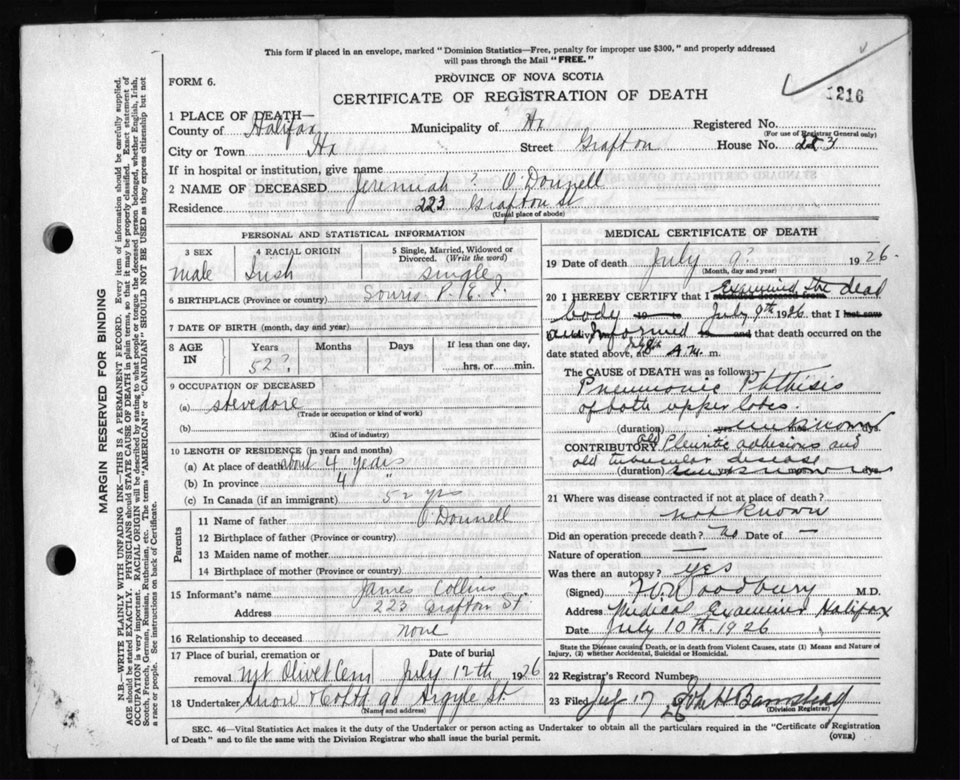 This form if placed in an envelope, marked "Dominion Statistics—Free, penalty for improper use $300," and properly addressed
will pass through the Mail "FREE."
FORM 6.
PROVINCE OF NOVA SCOTIA
1216
CERTIFICATE OF REGISTRATION OF DEATH
1 PLACE OF DEATH—
County of Halifax Municipality of Hx Registered No.
(For use of Registrar General only)
City or Town Hx Street Grafton House No. 223
If in hospital or institution, give name
2 NAME OF DECEASED Jeremiah ? O'Donnell
Residence 223 Grafton St
(Usual place of abode)
PERSONAL AND STATISTICAL INFORMATION
3 SEX 4 RACIAL ORIGIN 5 Single, Married, Widowed or
Divorced. (Write the word)
male Irish single
6 BIRTHPLACE (Province or country) Souris P.E.I.
7 DATE OF BIRTH (month, day and year)
8 AGE IN Years Months Days If less than one day,
52? hrs. or min.
9 OCCUPATION OF DECEASED
(a) stevedore
(Trade or occupation or kind of work)
(b)
(Kind of industry)
10 LENGTH OF RESIDENCE (in years and months)
(a) At place of death about 4 years
(b) In province 4 "
(c) In Canada (if an immigrant) 52 yrs
Parents
11 Name of father O'Donnell
12 Birthplace of father (Province or country)
13 Maiden name of mother
14 Birthplace of mother (Province or country)
15 Informant's name James Collins
Address 223 Grafton St
16 Relationship to deceased none
17 Place of burial, cremation or Date of burial
removal Mt Olivet Cem July 12th 1926
18 Undertaker Snow & Co Ltd 90 Argyle St
(Name and address)
MEDICAL CERTIFICATE OF DEATH
19 Date of death July 9? 1926.
(Month, day and year)
20 I HEREBY CERTIFY that I Examined the dead
body July 9th 1926 that I last saw
am Informed that death occurred on
date stated above, at A.m. m.
The CAUSE OF DEATH was as follows:
Pneumonic Phthisis
of both upper lobes.
(duration) unknown
CONTRIBUTORY old Pleuritic adhesions and
old tubercular disease
(duration) unknown
21 Where was disease contracted if not at place of death?
not known
Did an operation precede death? No Date of —
Nature of operation —
Was there an autopsy? yes
(Signed) Woodbury M.D.
Address Medical Examiner Halifax
Date July 10th. 1926
State the Disease causing Death, or in death from Violent Causes, state (1) Means and Nature of
Injury, (2) whether Accidental, Suicidal or Homicidal.
22 Registrar's Record Number
23 Filed July 17 26 John H Barnstead
(Division Registrar)
SEC. 46—Vital Statistics Act makes it the duty of the Undertaker or person acting as Undertaker to obtain all the particulars required in the "Certificate of Registration
of Death" and to file the same with the Division Registrar who shall issue the burial permit. (OVER)
MARGIN RESERVED FOR BINDING
N.B.—WRITE PLAINLY WITH UNFADING INK—THIS IS A PERMANENT RECORD. Every item of information should be carefully supplied.
AGE should be stated EXACTLY. PHYSICIANS should STATE CAUSE OF DEATH in plain terms, so that it may be properly classified. Exact statement of
OCCUPATION is very important. RACIAL ORIGIN will be described by stating to what people or tongue the deceased person belonged, whether English, Irish,
Scotch, French, German, Russian, Ruthenian, etc. The terms "AMERICAN" or "CANADIAN" SHOULD NOT BE USED as they express citizenship but not
a race or people. See instructions on back of Certificate.